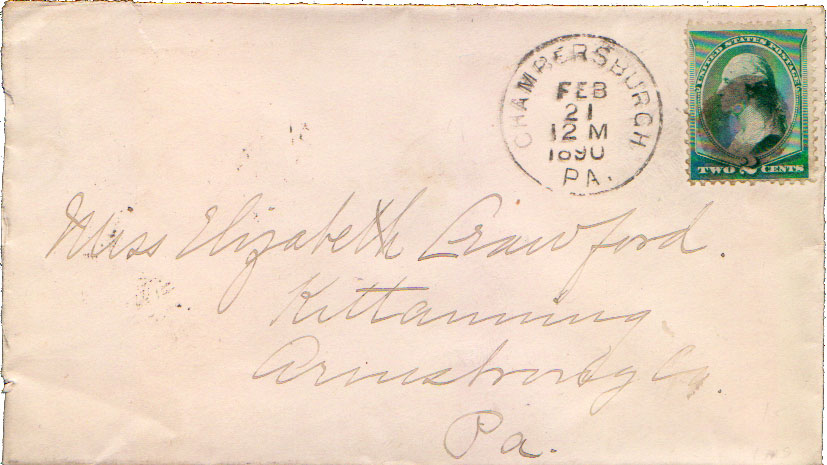 CHAMBERSBURGH
FEB
21
12 M
1890
PA.
UNITED STATES POSTAGE
TWO 2 CENTS
Miss Elizabeth Crawford.
Kittanning
Armstrong Co.
Pa.